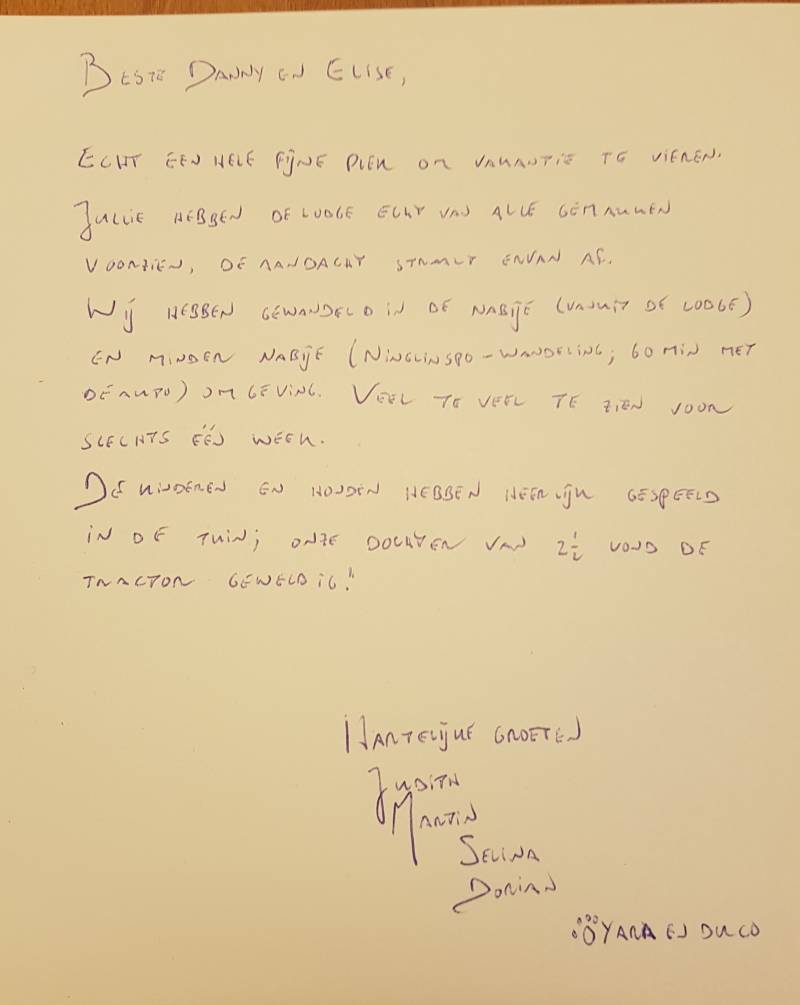 Beste Danny en Elise,
Echt een hele fijne plek om vakantie te vieren.
Jullie hebben de lodge echt van alle gemakken
voorzien, de aandacht straalt ervan af.
Wij hebben gewandeld in de nabije (vanuit de lodge)
en minder nabije (Ninglinspo-wandeling; 60 min met
de auto) omgeving. Veel te veel te zien voor
slechts één week.
De kinderen en honden hebben heerlijk gespeeld
in de tuin; onze dochter van 2½ vond de
tractor geweldig!
Hartelijke groeten
Judith
Martin
Selina
Dorian
Yara en Duco